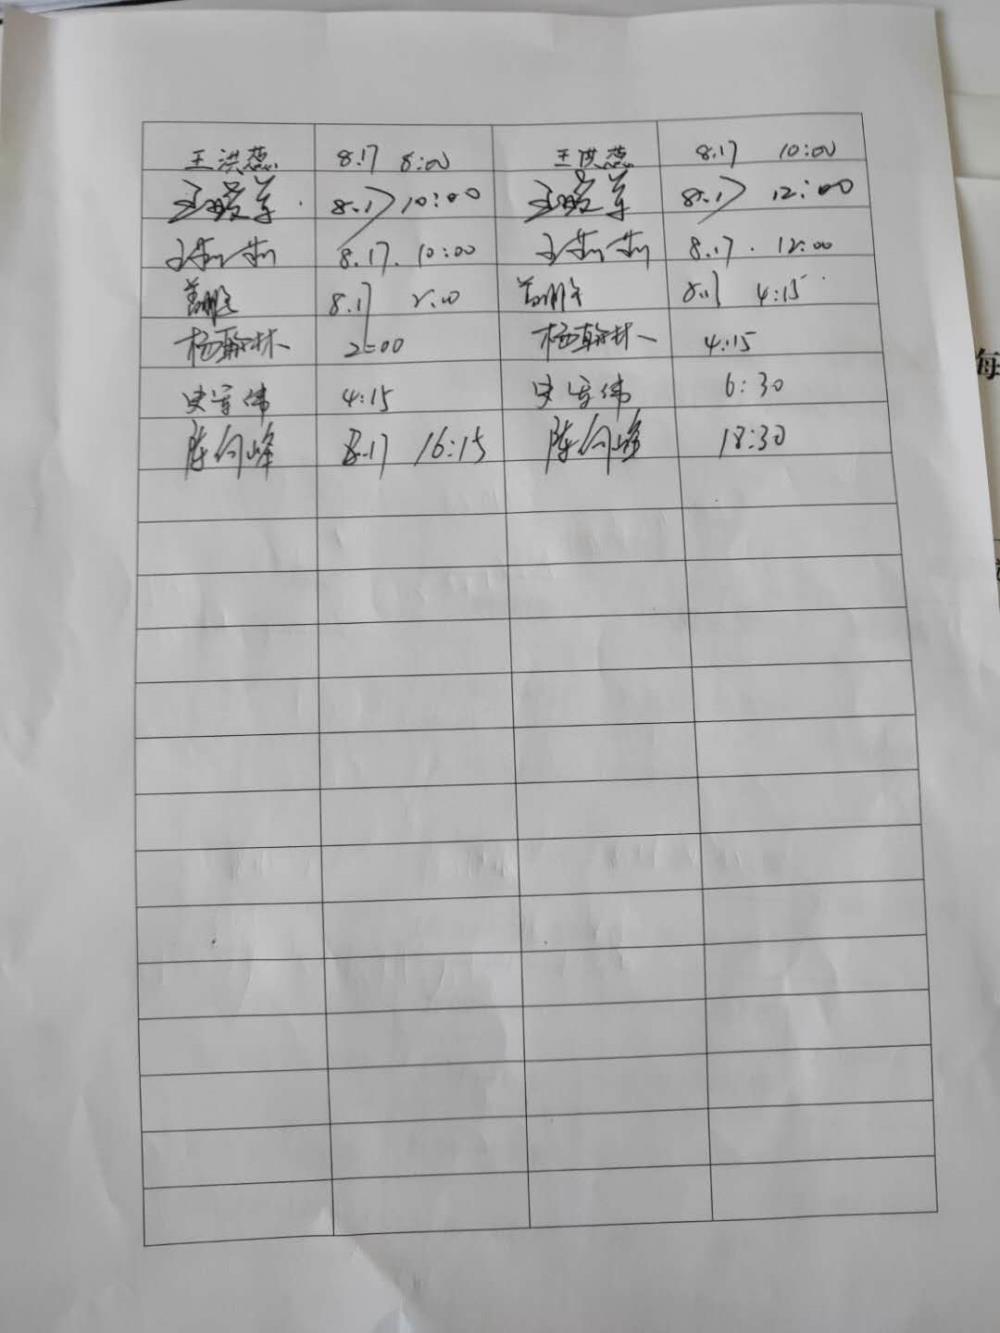 王洪蕊 8.17 8:00 王洪蕊 8.17 10:00
王 军 8.17 10:00 王 军 8.17 12:00
王莉莉 8.17. 10:00 王莉莉 8.17. 12:00
8.17 2:00 8.17 4:15
杨翰林 2:00 杨翰林 4:15
史军伟 4:15 史军伟 6:30
陈向峰 8.17 16:15 陈向峰 18:30
每